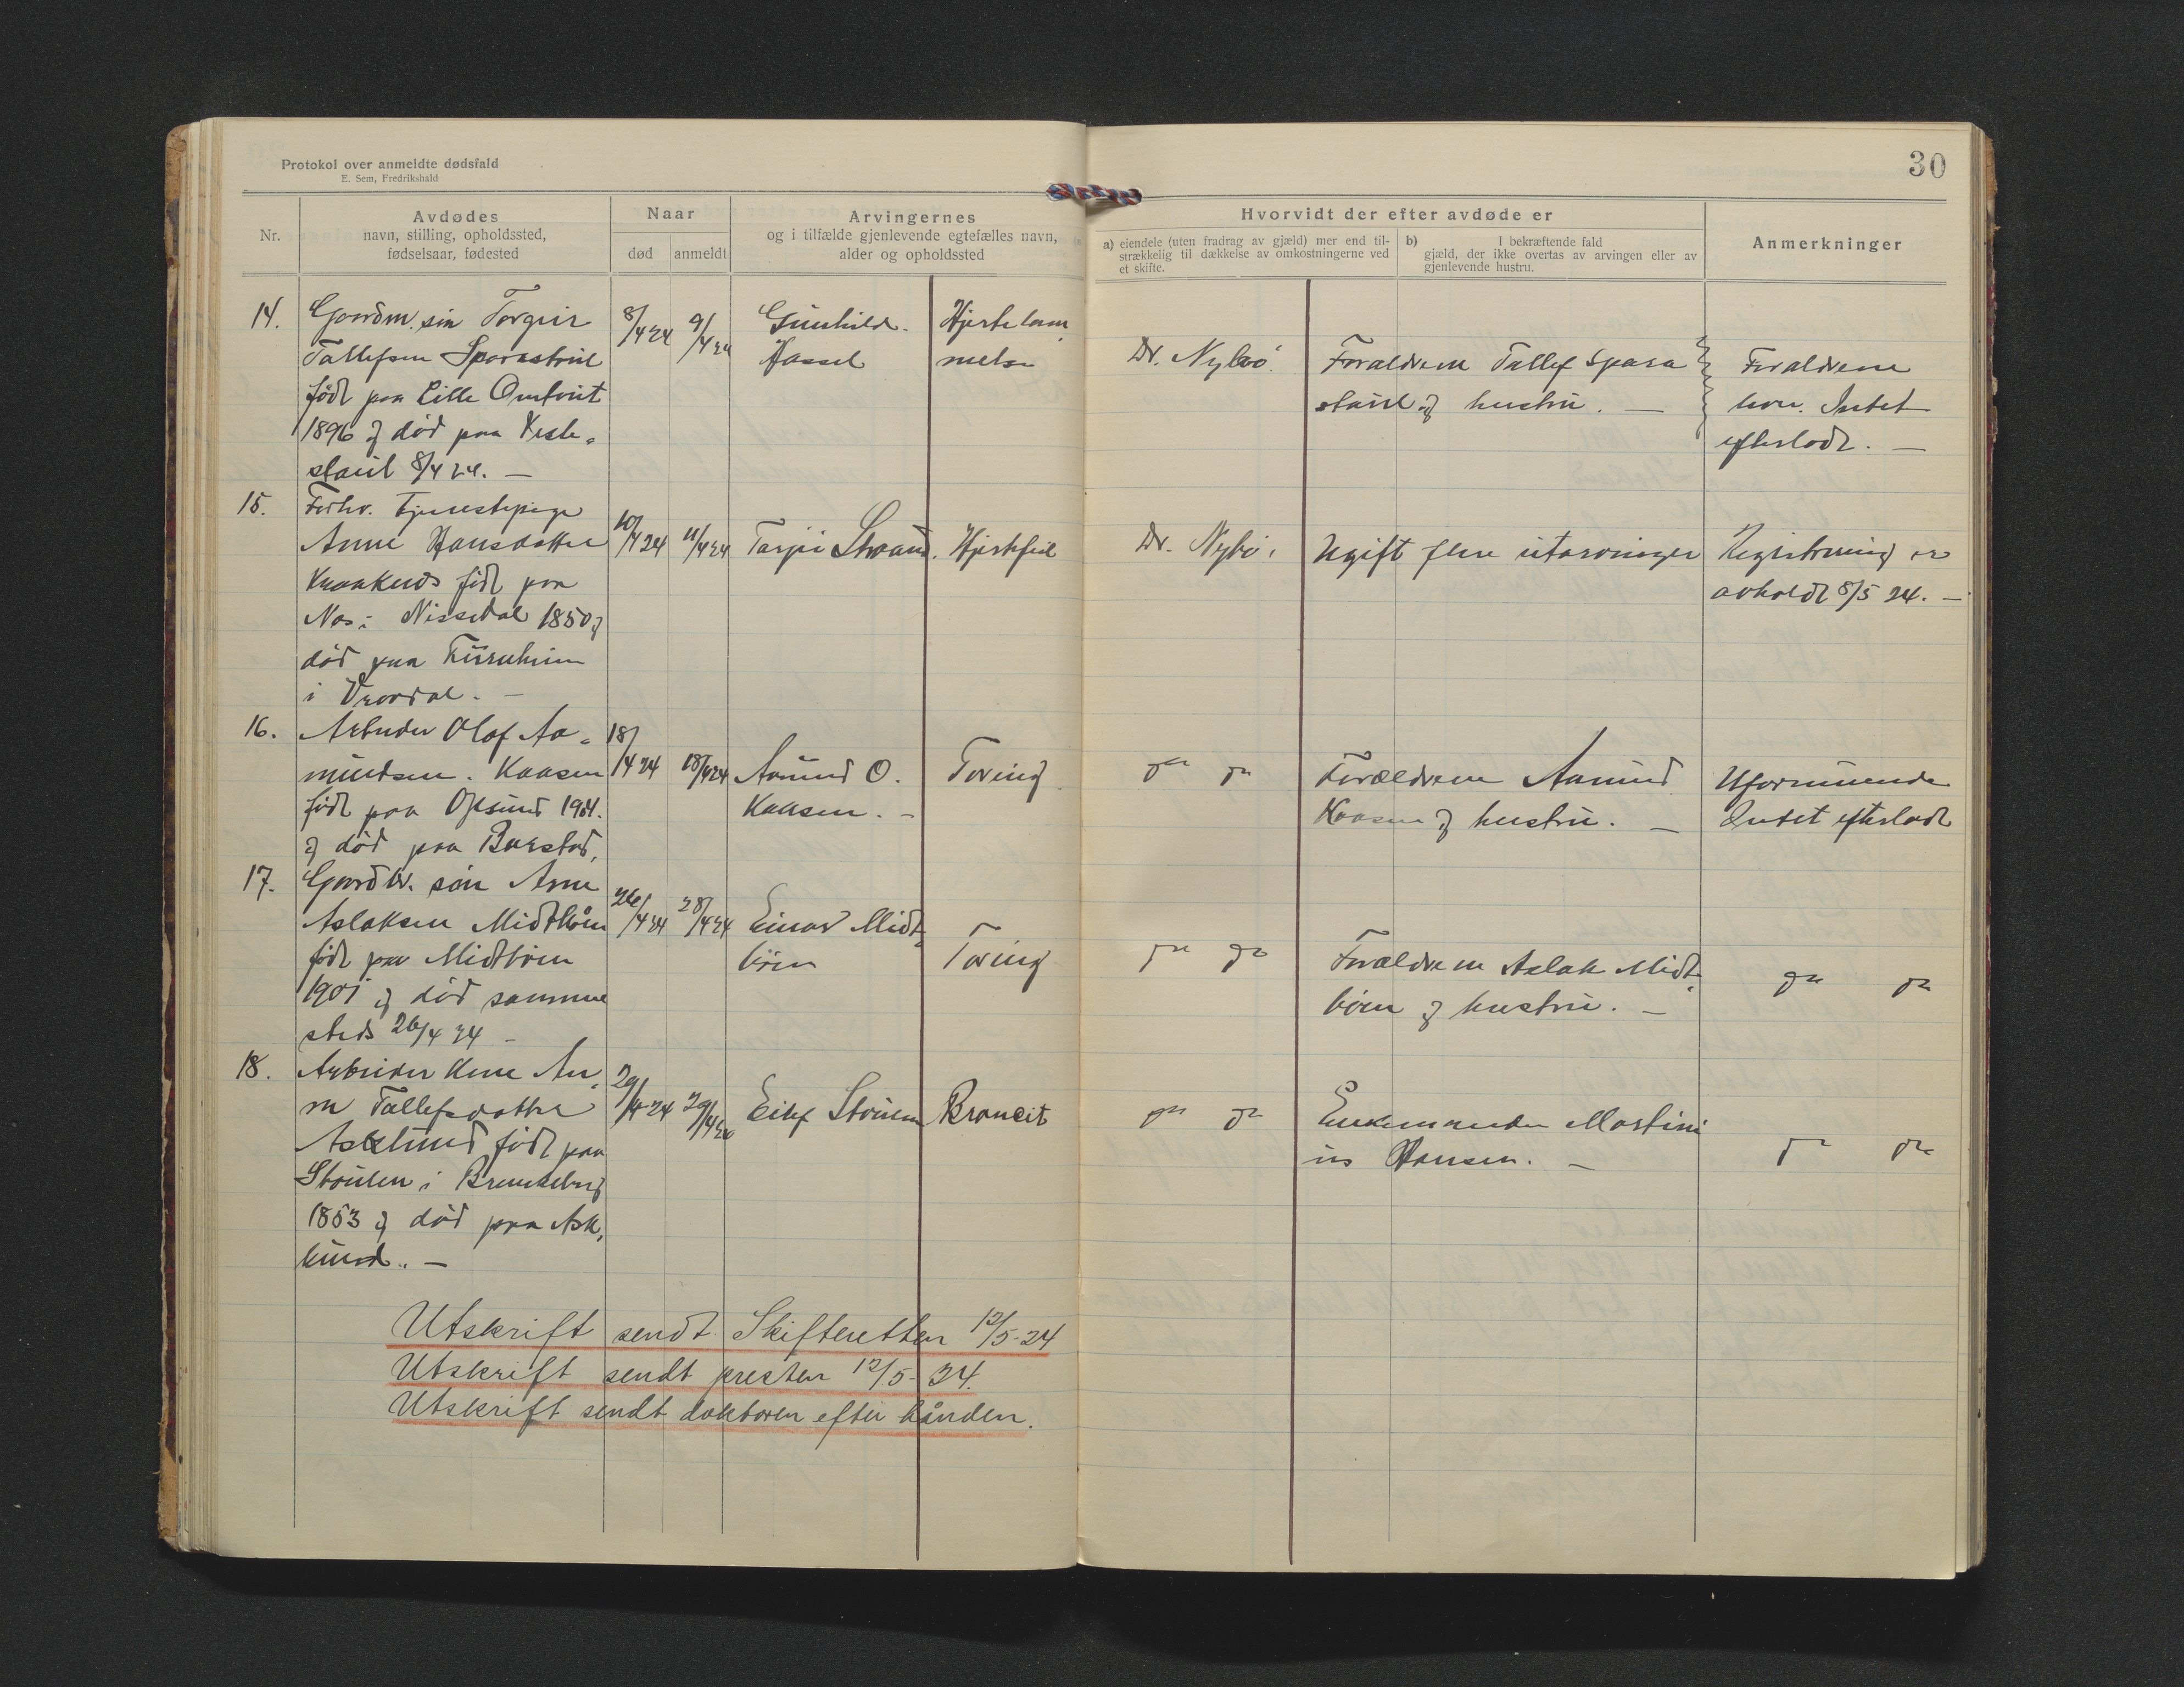 Protokol over anmeldte dødsfald
E. Sem, Fredrikshald
30
Nr.
Avdødes
navn, stilling, opholdssted,
fødselsaar, fødested
Naar
død
anmeldt
Arvingernes
og i tilfælde gjenlevende egtefælles navn,
alder og opholdssted
Hvorvidt der efter avdøde er
a) eiendele (uten fradrag av gjæld) mer end til-
strækkelig til dækkelse av omkostningerne ved
et skifte.
b) I bekræftende fald
gjæld, der ikke overtas av arvingen eller av
gjenlevende hustru.
Anmerkninger
14.
Gaardm. søn Torgeir
Tallefsen Sparastøil
født paa Lille Omtveit
1896 og død paa
støil 8/4 24. —
8/4 24
9/4 24
Gunhild
Hassel
Hjertelam
melse
Dr. Nybø.
Forældrene Tallef Spara
støil og hustru. —
Forældrene
lever. Intet
efterladt. —
15.
Forhv. Tjenestepige
Anne Hansdatter
født paa
Nes i Nissedal 1850 og
død paa
i Vraadal. —
10/4 24
11/4 24
Tarjei Straand.
Hjertefeil
Dr. Nybø.
Ugift flere utarvinger
Registrering er
avholdt 8/5 24. —
16.
Arbeider Olaf Aa-
mundsen. Kaasen
født paa Opsund 1904.
og død paa Barstad.
18/4 24
18/4 24
Aamund O.
Kaasen. —
Tæring
do do
Forældrene Aamund
Kaasen og hustru. —
Uformuende
Intet efterladt
17.
Gaardbr. søn Arne
Aslaksen Midtbøen
født paa Midtbøen
1901 og død samme
steds 26/4 24 —
26/4 24
28/4 24
Einar Midt-
bøen
Tæring
do do
Forældrene Aslak Midt-
bøen og hustru. —
do do
18.
Arbeider Kone An-
ne Tallefsdatter
Asklund født paa
Støilen i Brunkeberg
1853 og død paa Ask-
lund. —
29/4 24
29/4 24
Eilef Støilen
Broncit
do do
Enkemanden Martini
us Hansen. —
do do
Utskrift sendt Skifteretten 12/5-24
Utskrift sendt presten 12/5-24.
Utskrift sendt doktoren efter hånden.